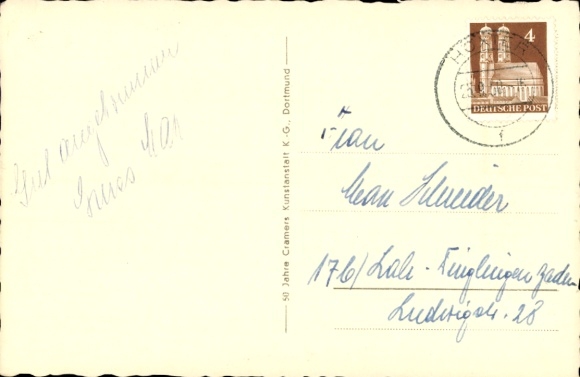 Gut angekommen
Gruss
50 Jahre Cramers Kunstanstalt K.-G., Dortmund
4
DEUTSCHE POST
HÖXTER
f
Frau
Schneider
17b/ Lahr-Dinglingen Baden
Ludwigstr. 28